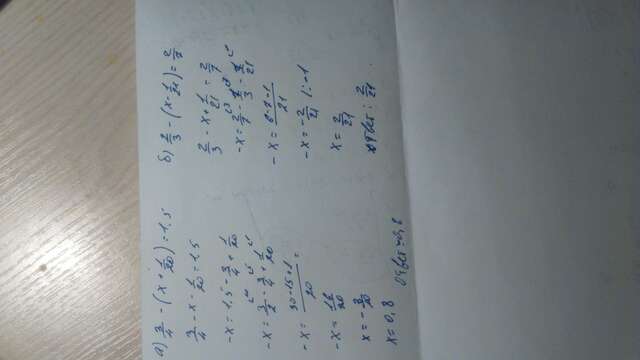 а) 3/4 - (x + 1/20) = 1,5
3/4 - x - 1/20 = 1.5
-x = 1.5 - 3/4 + 1/20
-x = 3/2 - 3/4 + 1/20
-x = 30-15+1/20 =
-x = 16/20
x = -
x = 0,8
Ответ: 0,8
б) 2/3 - (x - 1/21) = 2/7
2/3 - x + 1/21 = 2/7
-x = 2/7 - 2/3 - 1/21
-x =
-x = - 2/21 |: -1
x = 2/21
Ответ: 2/21.